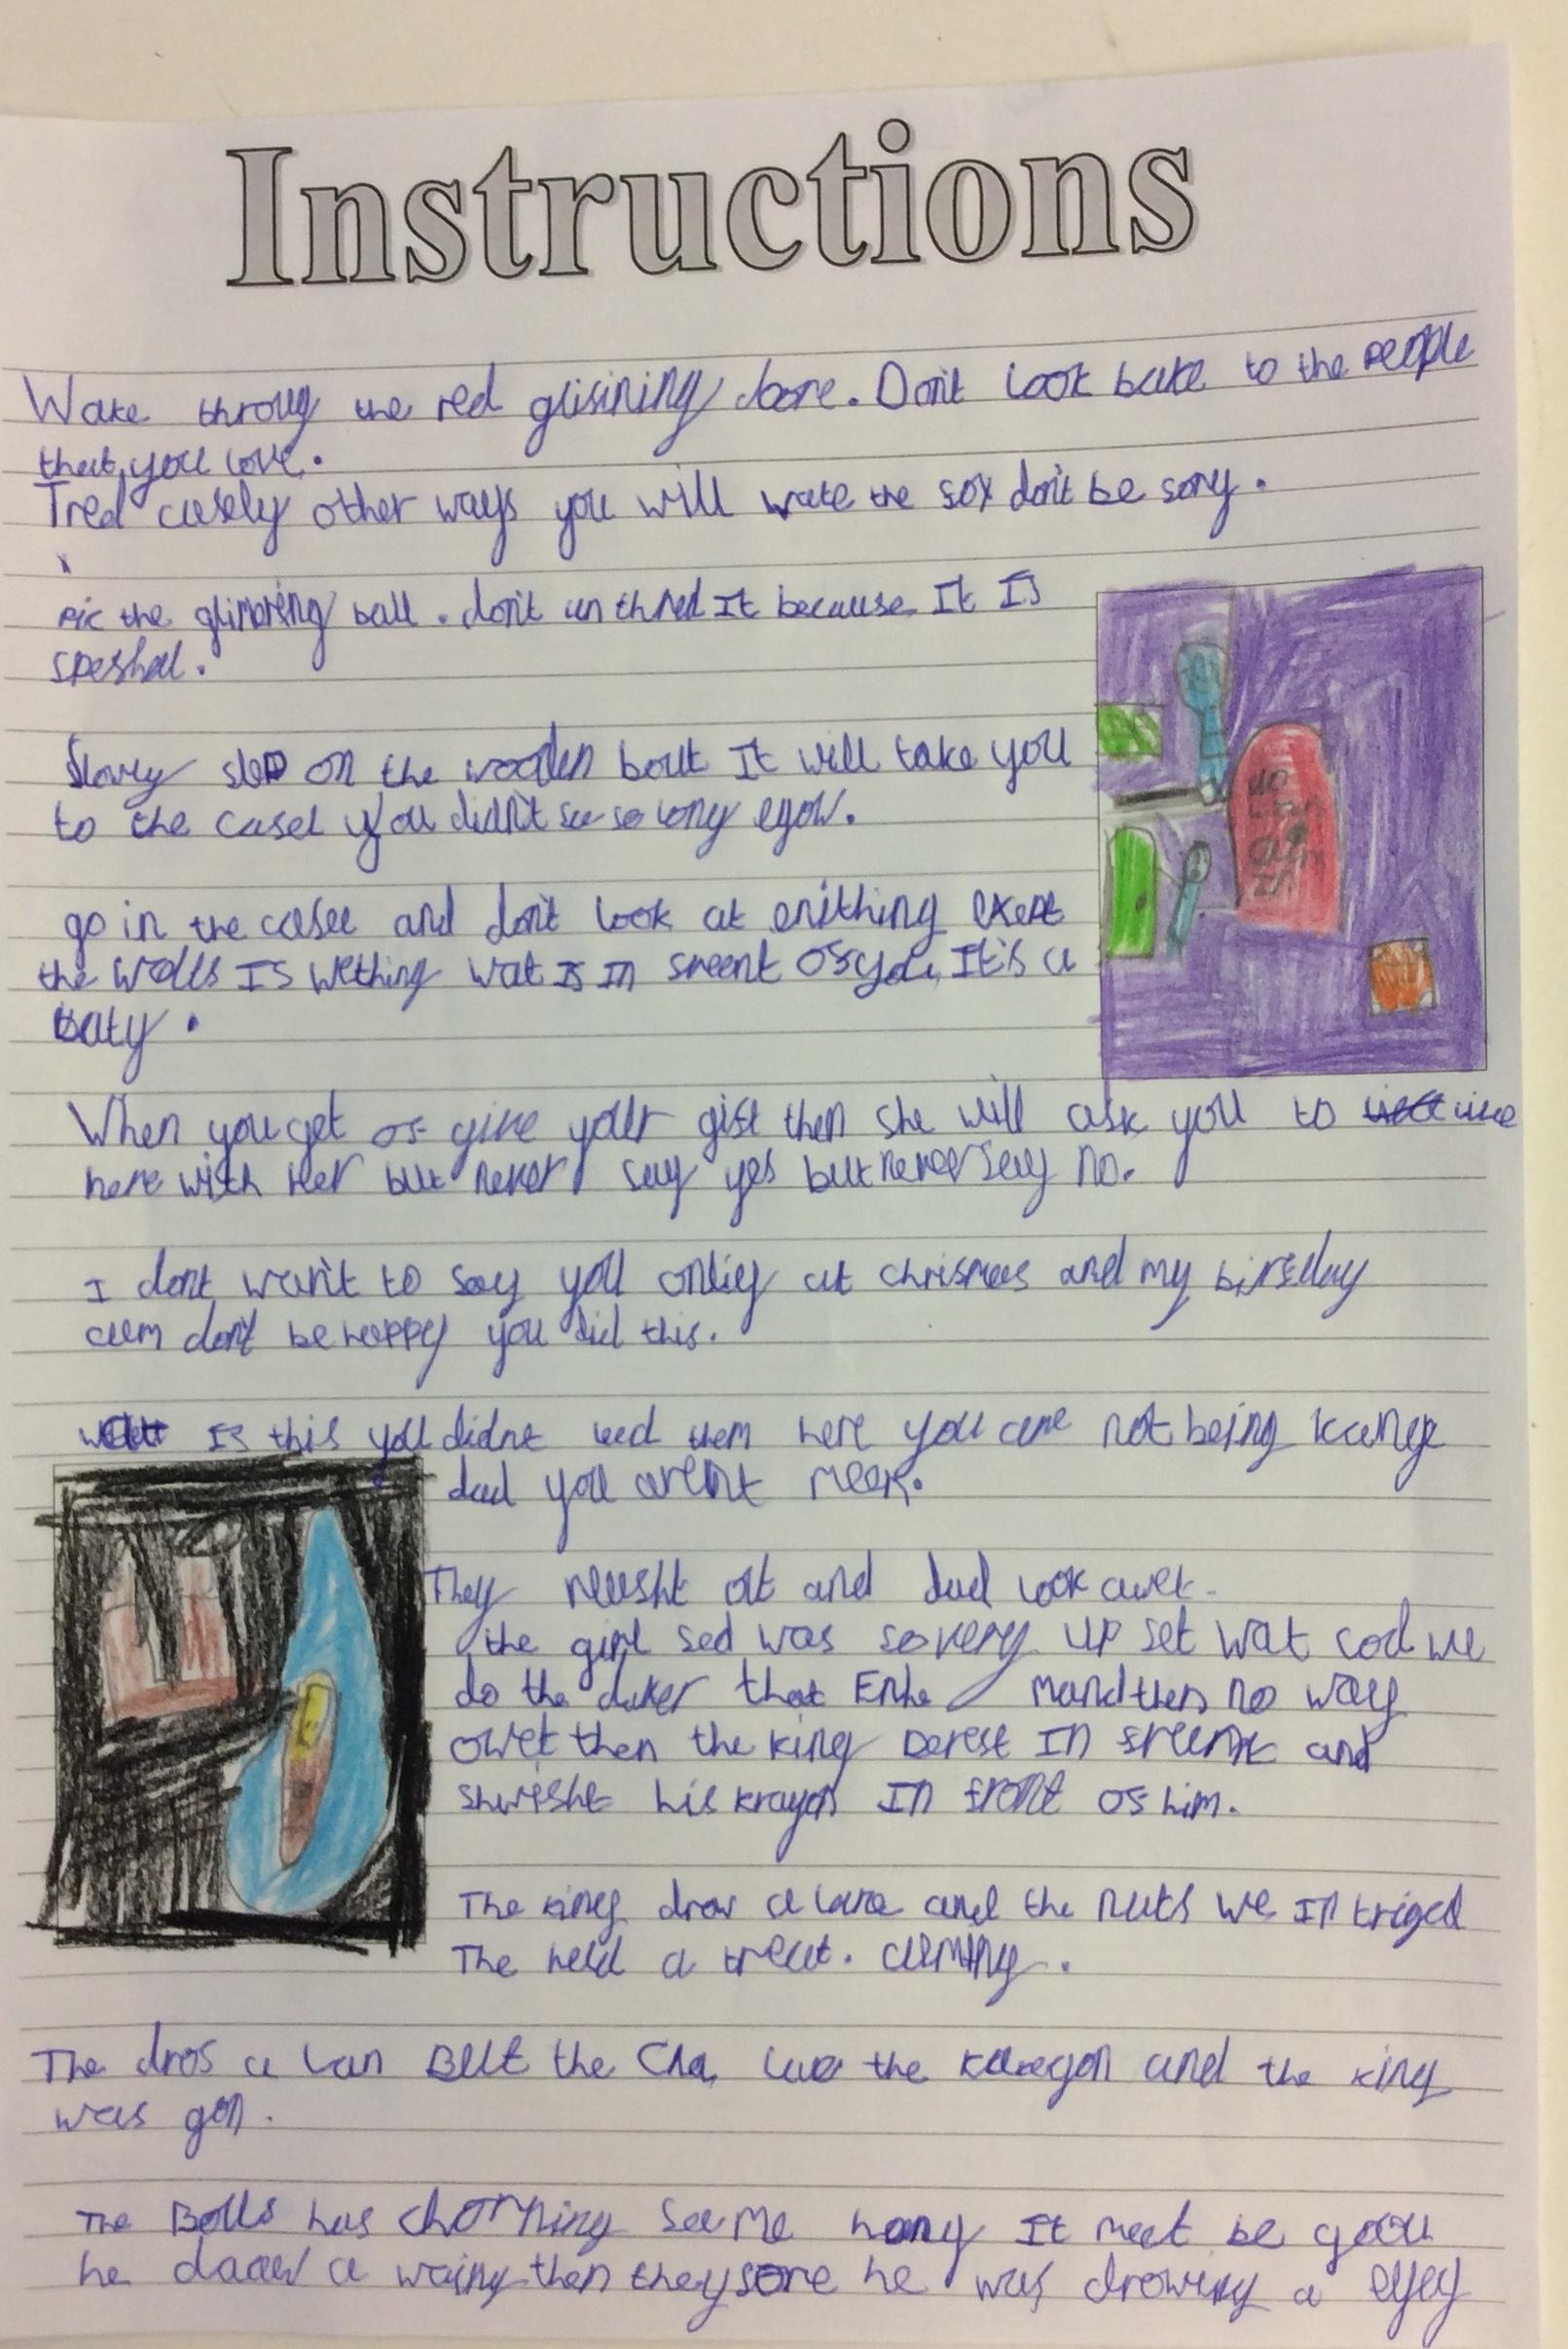 Instructions
Wake throug the red glisining dore. Don't look bake to the people
that you love.
Tred casely other ways you will wake the fox don't be sory.
pic the glimoring ball. don't un thred It because It Is
speshal.
Slowly step on the wooden bout It will take you
to the casel you didn't see so long egow.
go in the casel and don't look at enithing exept
the wolls Is wething wat is In freent of you, It's a
baty.
When you get of give your gift then she will ask you to live
here with her but never say yes but never say no.
I dont wan't to say you onliy at chrismas and my birfday
cum don't be happy you did this.
Is this you didnt need them here you are not being
dad you aren't meen.
They reusht out and dad look
the girl sed was so very up set wat cod we
do the then no way
owet then the king In and
swisht his krayon In front of him.
The king drow a and the nuts we In triged
The held a treat.
The dros a lan But the the and the king
was gon.
The Bolls has See me It meet be good
he a then they sore he was drowing a